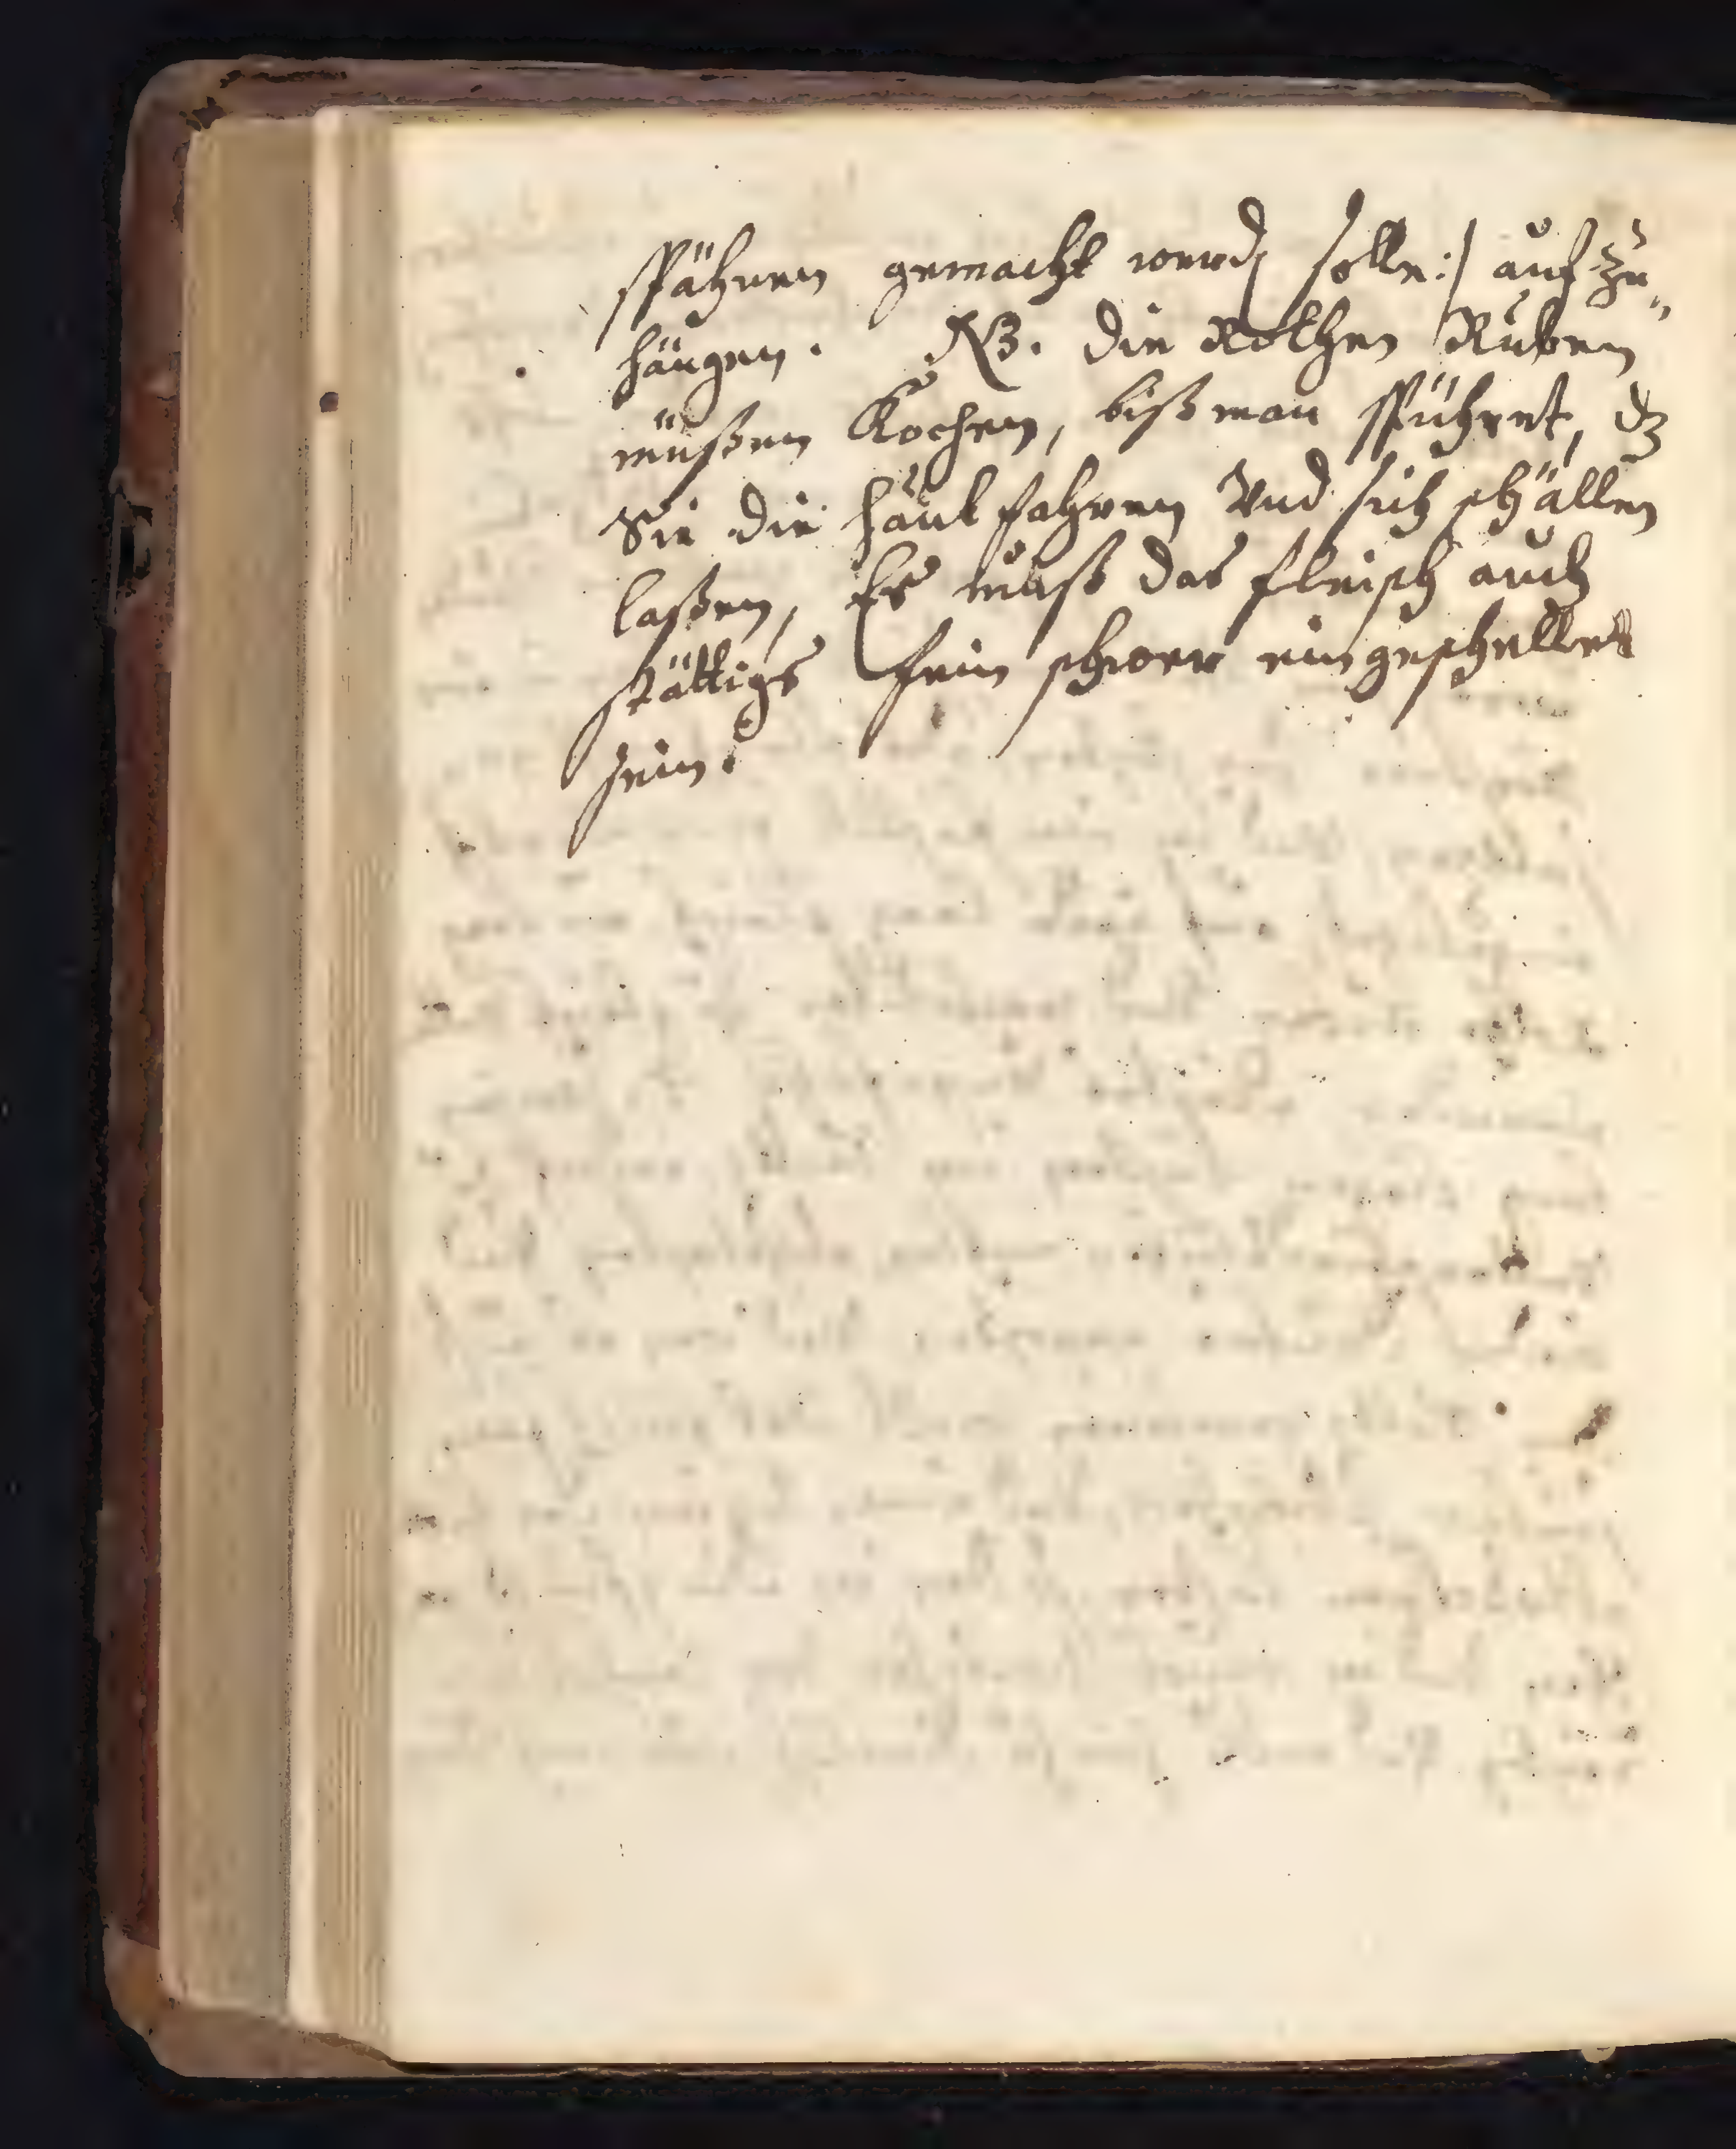 spähnen gemacht werd solle:/ auf zu„
hängen. NB. die Rothen Ruben
müßen Kochen, biß man spühret, dz
Sie die haut fahren Vnd sich schällen
laßen, Es muß das fleisch auch
stättigs fein schwer eingeschellet
sein.